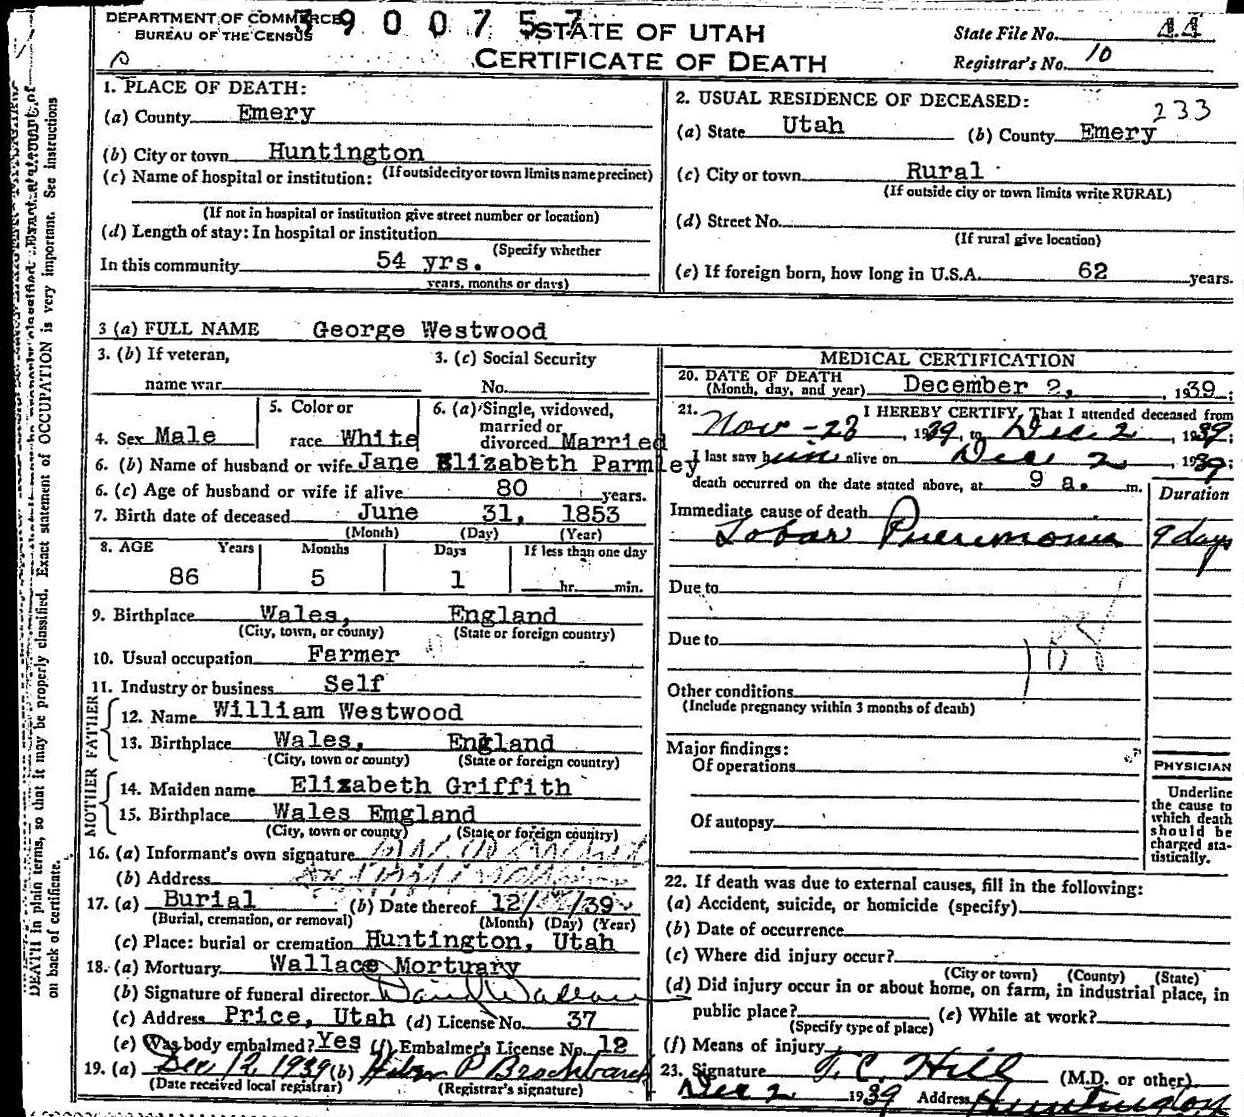 DEPARTMENT OF COMMERCE
BUREAU OF THE CENSUS
3900757
STATE OF UTAH
CERTIFICATE OF DEATH
State File No. 44
Registrar's No. 10
1. PLACE OF DEATH:
(a) County Emery
(b) City or town Huntington
(If outside city or town limits name precinct)
(c) Name of hospital or institution:
(If not in hospital or institution give street number or location)
(d) Length of stay: In hospital or institution
(Specify whether
In this community 54 yrs.
years, months or days)
2. USUAL RESIDENCE OF DECEASED:
233
(a) State Utah (b) County Emery
(c) City or town Rural
(If outside city or town limits write RURAL)
(d) Street No.
(If rural give location)
(e) If foreign born, how long in U.S.A. 62 years.
3 (a) FULL NAME George Westwood
3. (b) If veteran,
name war
3. (c) Social Security
No.
4. Sex Male
5. Color or
race White
6. (a) Single, widowed,
married or
divorced Married
6. (b) Name of husband or wife Jane Elizabeth Parmley
6. (c) Age of husband or wife if alive 80 years.
7. Birth date of deceased June 31, 1853
(Month) (Day) (Year)
8. AGE Years Months Days If less than one day
86 5 1 hr. min.
9. Birthplace Wales, England
(City, town, or county) (State or foreign country)
10. Usual occupation Farmer
11. Industry or business Self
FATHER
12. Name William Westwood
13. Birthplace Wales, England
(City, town or county) (State or foreign country)
MOTHER
14. Maiden name Elizabeth Griffith
15. Birthplace Wales Emgland
(City, town or county) (State or foreign country)
16. (a) Informant's own signature
(b) Address
17. (a) Burial (b) Date thereof 12/ /39
(Burial, cremation, or removal) (Month) (Day) (Year)
(c) Place: burial or cremation Huntington, Utah
18. (a) Mortuary Wallace Mortuary
(b) Signature of funeral director
(c) Address Price, Utah (d) License No. 37
(e) Was body embalmed? Yes (f) Embalmer's License No. 12
19. (a) Dec 12 1939 (b)
(Date received local registrar) (Registrar's signature)
MEDICAL CERTIFICATION
20. DATE OF DEATH
(Month, day, and year) December 2, 1939;
21. I HEREBY CERTIFY, That I attended deceased from
Nov - 23, 1939, to Dec 2, 1939;
I last saw him alive on Dec 2, 1939
death occurred on the date stated above, at 9 a. m.
Duration
Immediate cause of death
Lobar Pneumonia 9 days
Due to
Due to
108
Other conditions
(Include pregnancy within 3 months of death)
Major findings:
Of operations
Of autopsy
PHYSICIAN
Underline
the cause to
which death
should be
charged sta-
tistically.
22. If death was due to external causes, fill in the following:
(a) Accident, suicide, or homicide (specify)
(b) Date of occurrence
(c) Where did injury occur?
(City or town) (County) (State)
(d) Did injury occur in or about home, on farm, in industrial place, in
public place? (e) While at work?
(Specify type of place)
(f) Means of injury
23. Signature T. C. Hill (M.D. or other)
Dec 2 1939 Address Huntington
DEATH in plain terms, so that it may be properly classified. Exact statement of OCCUPATION is very important. See instructions
on back of certificate.